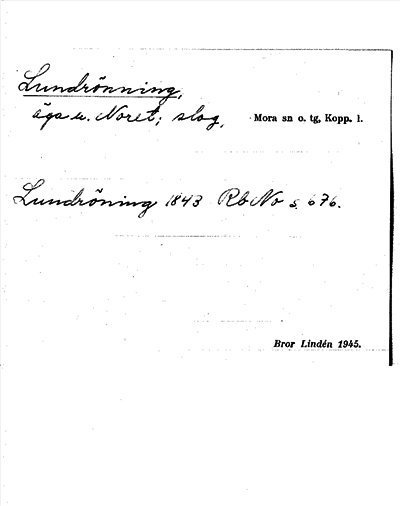 Lundrönning,
äga u. Noret; slog, Mora sn o. tg, Kopp. l.
Lundröning 1843 Rb No s. 676.
Bror Lindén 1945.